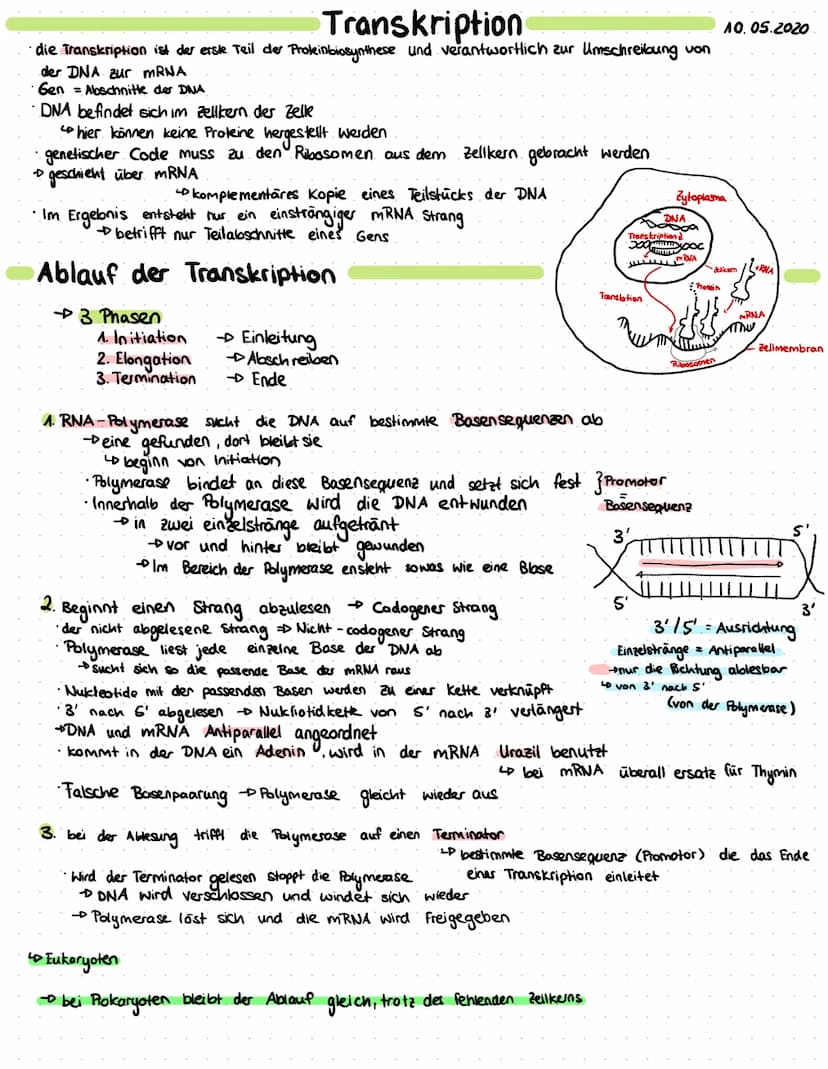 Transkription
10.05.2020
· die Transkription ist der erste Teil der Proteinbiosynthese und verantwortlich zur Umschreibung von
der DNA zur mRNA
· Gen = Abschnitte der DNA
· DNA befindet sich im Zellkern der Zelle
↳ hier können keine Proteine hergestellt werden
· genetischer Code muss zu den Ribosomen aus dem Zellkern gebracht werden
→ geschieht über mRNA
↳ komplementäres Kopie eines Teilstücks der DNA
· Im Ergebnis entsteht nur ein einsträngiger mRNA Strang
→ betrifft nur Teilabschnitte eines Gens
Zytoplasma
DNA
Transkription
mRNA
Zellkern
tRNA
Protein
Translation
mRNA
Zellmembran
Ribosomen
Ablauf der Transkription
→ 3 Phasen
1. Initiation → Einleitung
2. Elongation → Abschreiben
3. Termination → Ende
1. RNA-Polymerase sucht die DNA auf bestimmte Basensequenzen ab
→ eine gefunden, dort bleibt sie
↳ beginn von Initiation
· Polymerase bindet an diese Basensequenz und setzt sich fest } Promotor
=
Basensequenz
· Innerhalb der Polymerase wird die DNA entwunden
→ in zwei einzelstränge aufgetränt
→ vor und hinter bleibt gewunden
→ Im Bereich der Polymerase ensteht sowas wie eine Blase
3' 5'
5' 3'
3'/5' = Ausrichtung
Einzelstränge = Antiparallel
→ nur die Richtung ablesbar
↳ von 3' nach 5'
(von der Polymerase)
2. Beginnt einen Strang abzulesen → Codogener Strang
· der nicht abgelesene Strang ⇒ Nicht-codogener Strang
· Polymerase liest jede einzelne Base der DNA ab
→ sucht sich so die passende Base der mRNA raus
· Nukleotide mit der passenden Basen werden zu einer Kette verknüpft
· 3' nach 5' abgelesen → Nukliotidkette von 5' nach 3' verlängert
→ DNA und mRNA Antiparallel angeordnet
· kommt in der DNA ein Adenin, wird in der mRNA Urazil benutzt
↳ bei mRNA überall ersatz für Thymin
· Falsche Basenpaarung → Polymerase gleicht wieder aus
3. bei der Ablesung trifft die Polymerase auf einen Terminator
↳ bestimmte Basensequenz (Promotor) die das Ende
einer Transkription einleitet
· Wird der Terminator gelesen stoppt die Polymerase
→ DNA wird verschlossen und windet sich wieder
→ Polymerase löst sich und die mRNA wird freigegeben
↳ Eukaryoten
→ bei Prokaryoten bleibt der Ablauf gleich, trotz des fehlenden Zellkerns